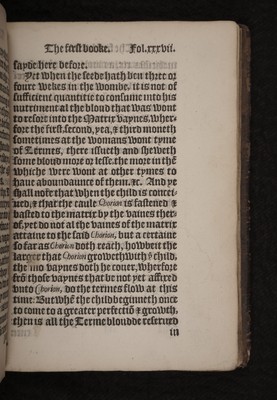 The first booke. Fol.xxxvii.
sayde here before.
Yet when the seede hath ben three or
foure wekes in the wombe, it is not of
sufficient quantitie to consume into his
nutriment al the bloud that was wont
to resort into the Matrix vaynes. wher-
fore the first, second, yea, & third moneth
sometimes at the womans wont tyme
of Termes, there issueth and sheweth
some bloud more or lesse. the more in thē
which were wont at other tymes to
haue aboundaunce of them. &c. And ye
shall note that when the child is concei-
ued, & that the caule Chorion is fastened &
basted to the matrix by the vaines ther-
of, yet do not al the vaines of the matrix
attayne to the said Chorion, but a certaine
so far as Chorion doth reach, howbeit the
larger that Chorion groweth with yͤ child,
the mo vaynes doth he couer, wherfore
frō those vaynes that be not yet affixed
vnto Chorion, do the termes flow at this
time: But whē the child beginneth once
to come to a greater perfectiō & growth,
then is all the Terme bloudde reserued
in